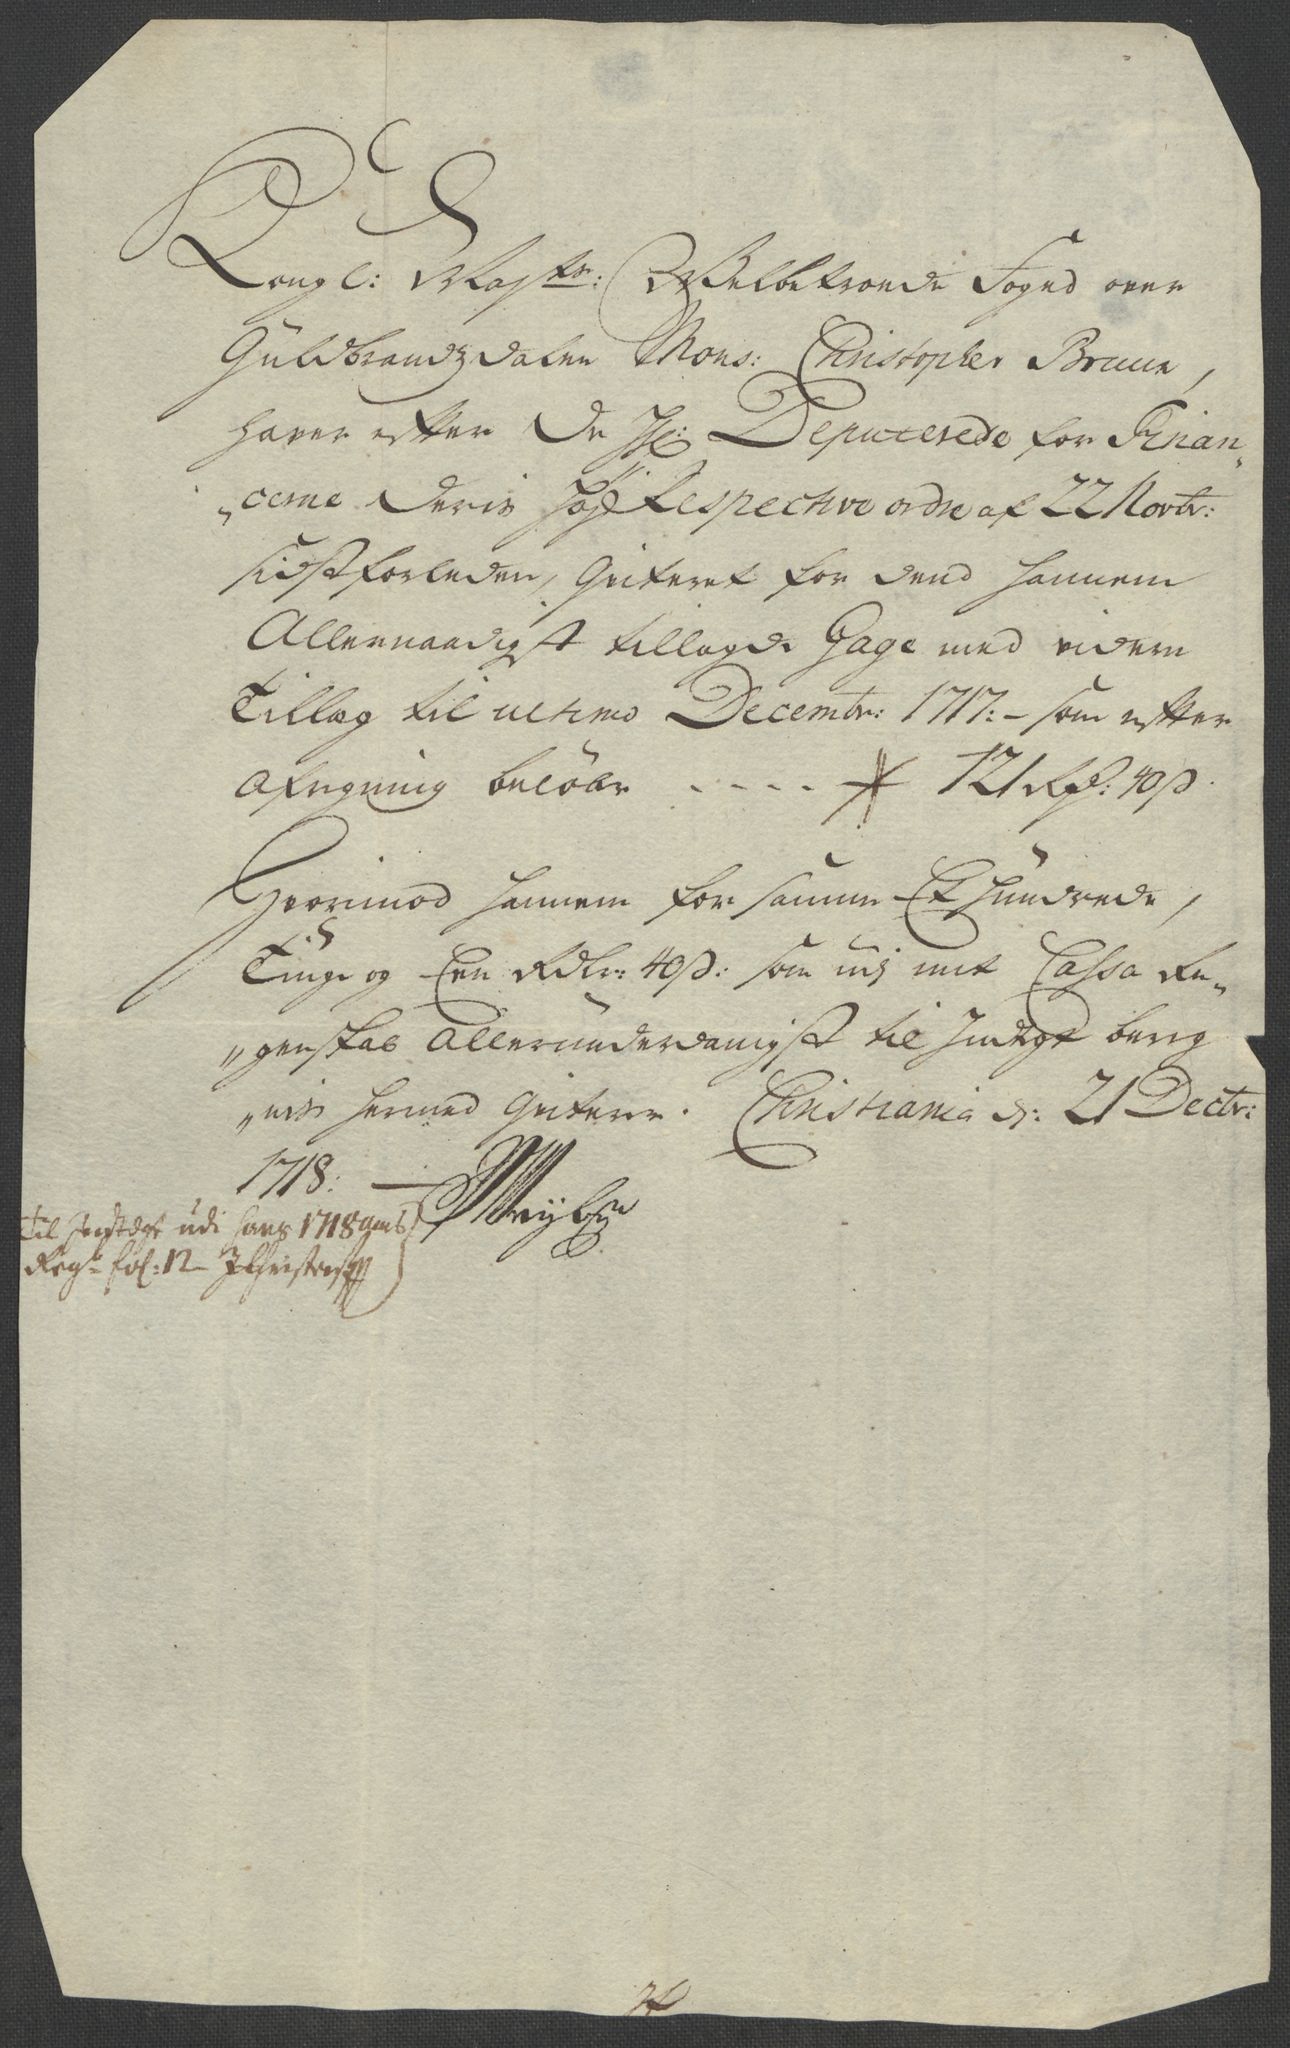 Kongl: Mayts: Welbetroede Foged over
Guldbrandzdalen Mons: Christopher Bruun,
haver efter De H: Deputerede for Finan„
„cerne Deris Høy Respective ordre af 22 Novbr:
sidstforleden, Qviteret for dend hannem
Allernaadigst tillagde Gage med videre
Tillæg til ultimo Decembr: 1717: - som efter
afregning beløber - - - - 121 Rd: 40 ß.
Hvorimod hannem for samme Et Hundrede,
Tiuge og Een Rdlr: 40 ß: som udj mit Cassa Re„
„genskab Allerunderdanigst til Indtegt bereg
„nis hermed Qviterer. Christiania d: 21 Decbr:
1718:
Til Indtegt udi hans 1718
Regn: fol: 12